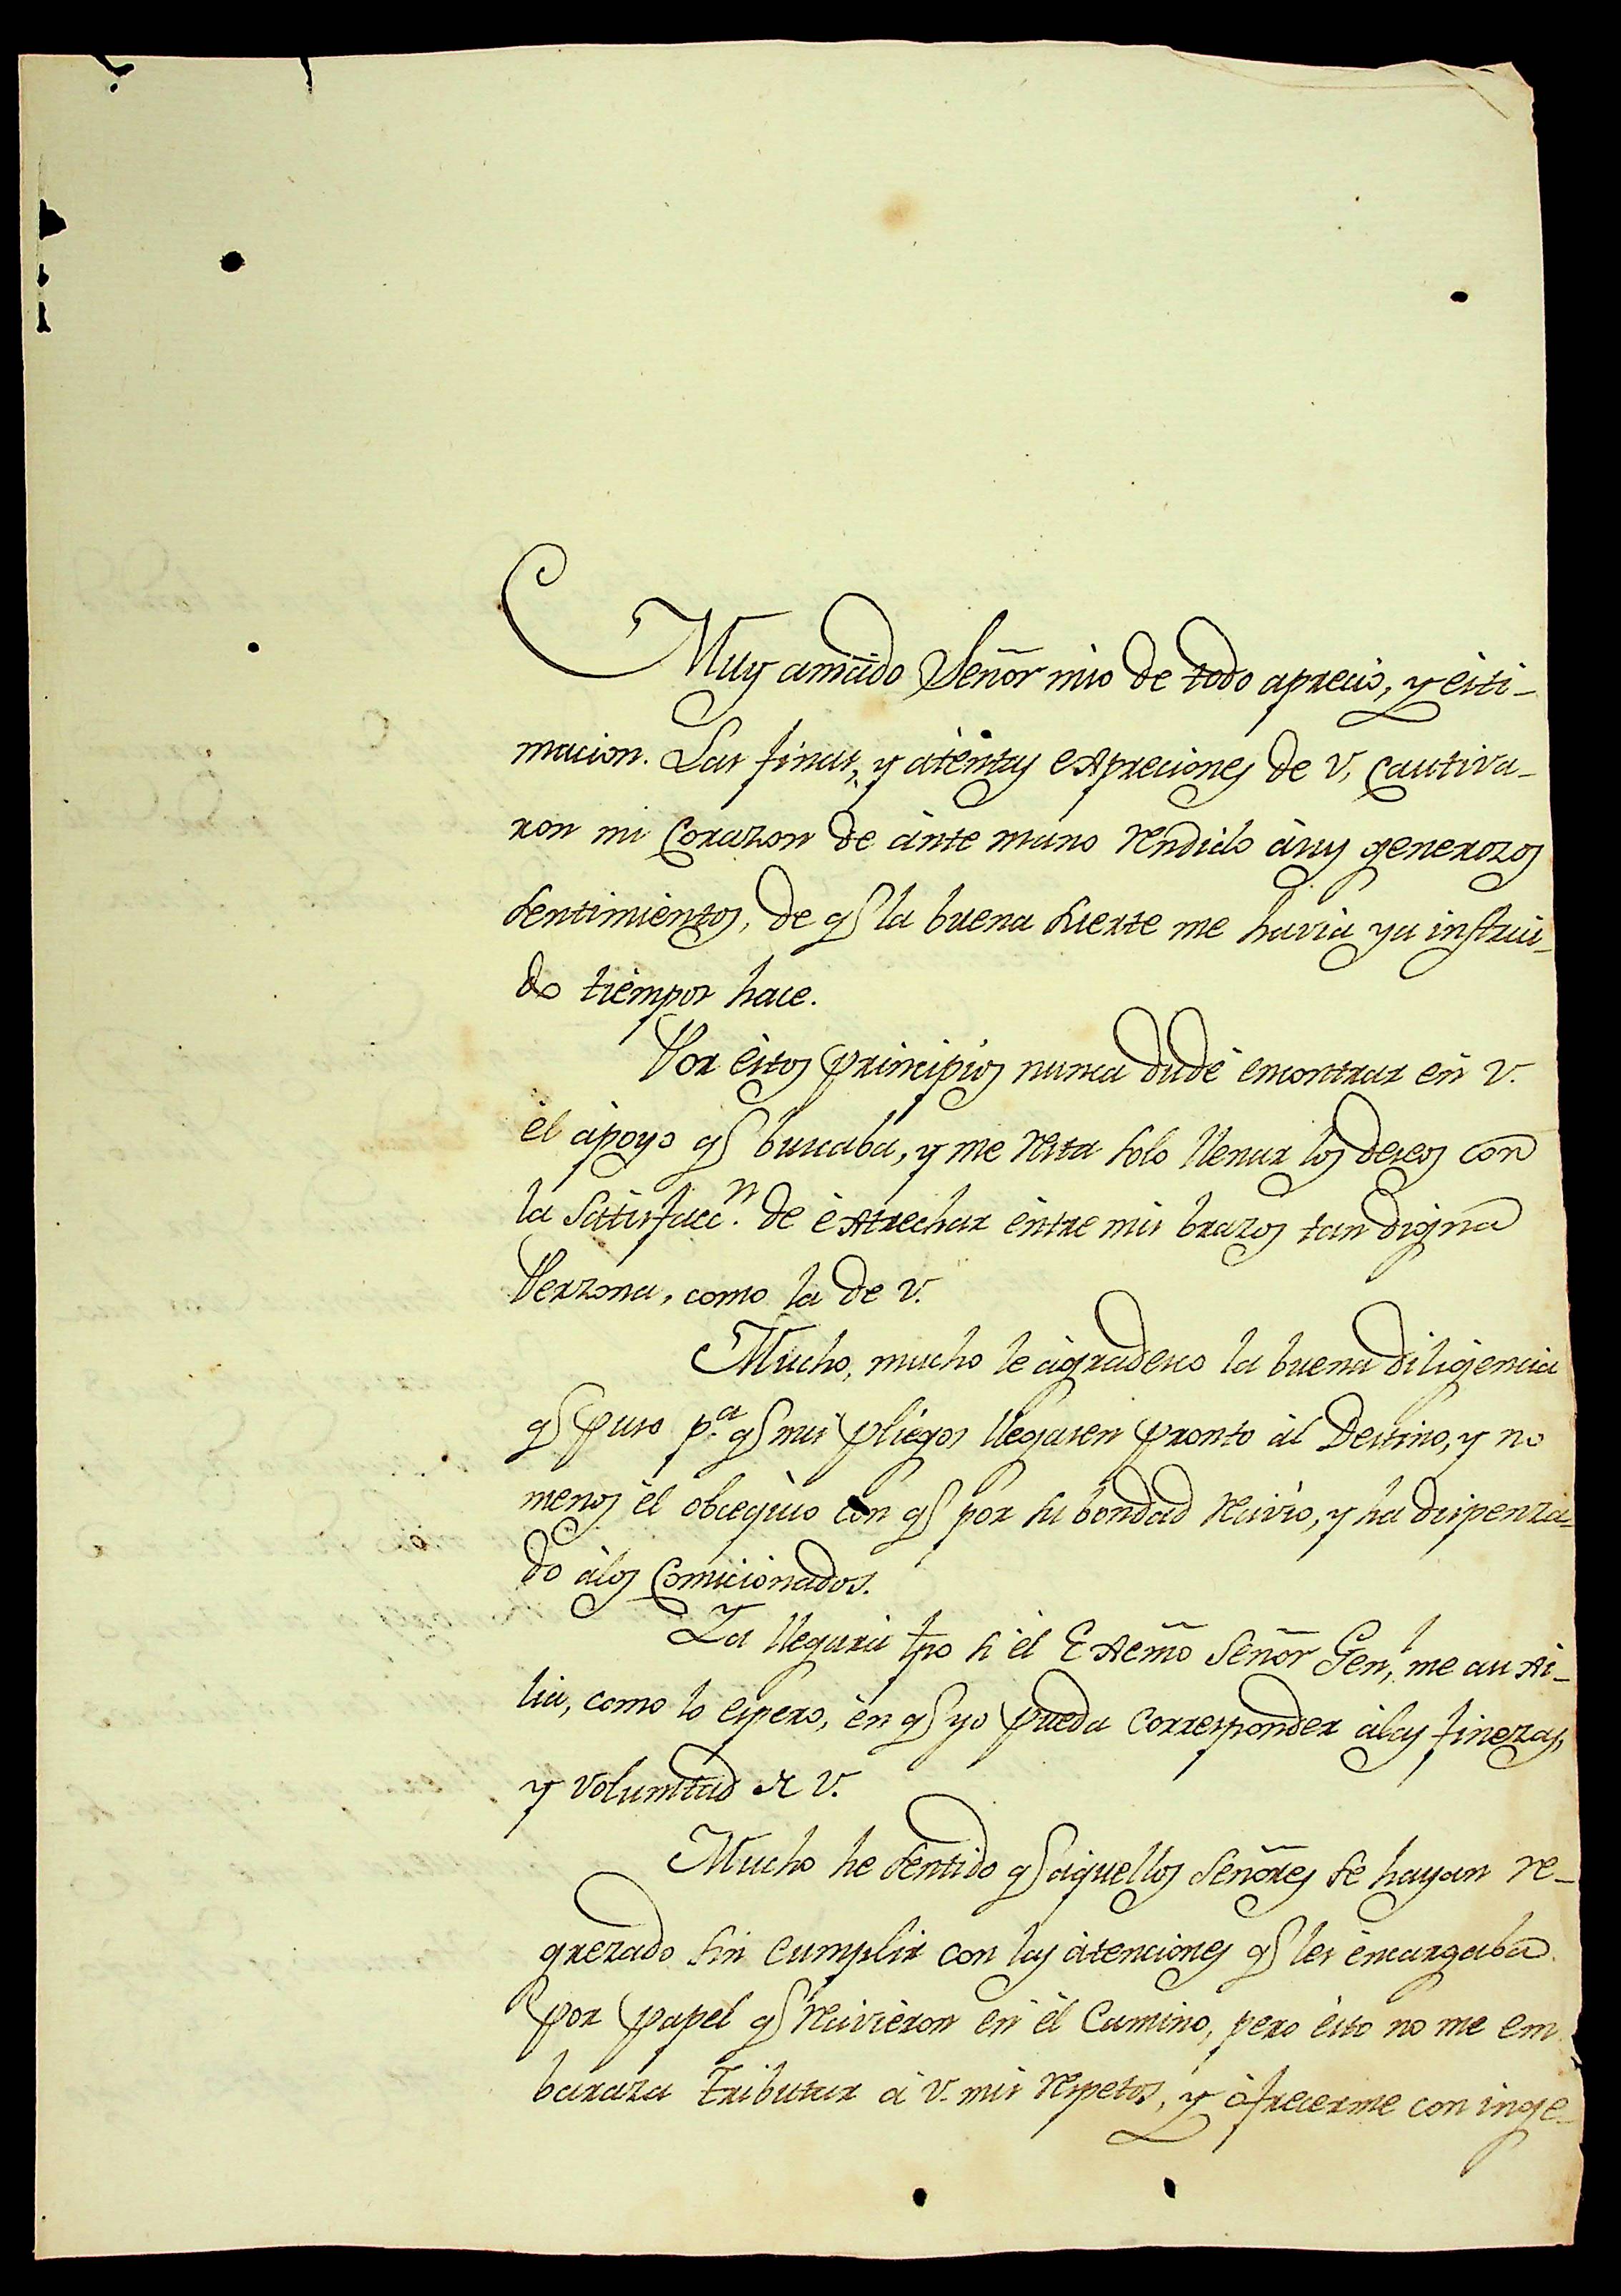 Muy amado Señor mio de todo aprecio, y èsti-
macion. Las finas, y atentas expreciones de V. cautiva-
ron mi Corazon de ànte mano rendido àsus generozos
sentimientos, de qᵉ la buena suerte me havia ya instrui-
do tiempos hace.
Por èstos principios nunca dudè encontrar èn V.
èl àpoyo qᵉ buscaba, y me resta solo llenar los deseos con
la satisfaccⁿ. de èxtrechar èntre mis brazos tan digna
Perzona, como la de V.
Mucho, mucho le àgradesco la buena diligencia
qᵉ puso p.ᵃ qᵉ mis pliegos llegasen pronto àl Destino, y no
menos èl obcequio con qᵉ por su bondad recivio, y ha dispenza-
do àlos Comicionados.
Ya llegarà tpo si èl Exc̃mo Señor Gen,ˡ me auxi-
lia, como lo espero, èn qᵉ yo pueda corresponder àlas finezas,
y volumtad de V.
Mucho he sentido qᵉ aquellos Señores se hayan re-
grezado sin cumplir con las àtenciones qᵉ les èncargaba
por papel qᵉ recivieron èn èl Camino, pero èsto no me em
baraza tributar à V. mis respetos, y òfrecerme con inge-